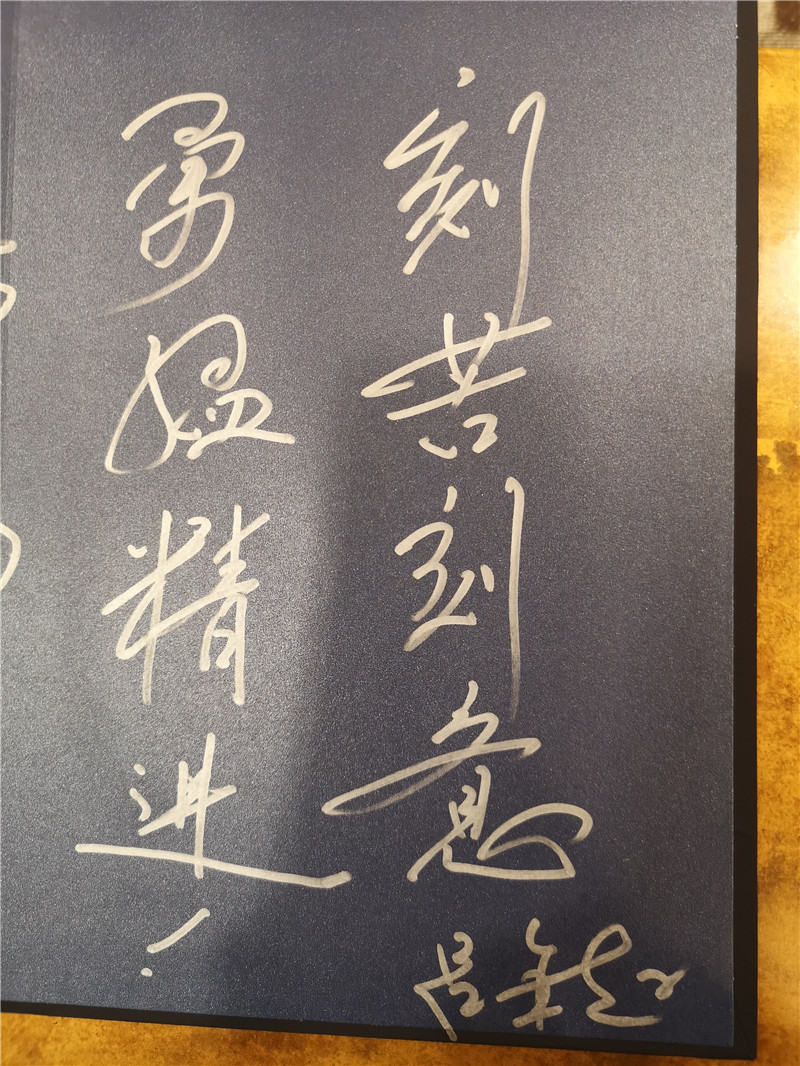 刻苦刻意
勇猛精进！
吕